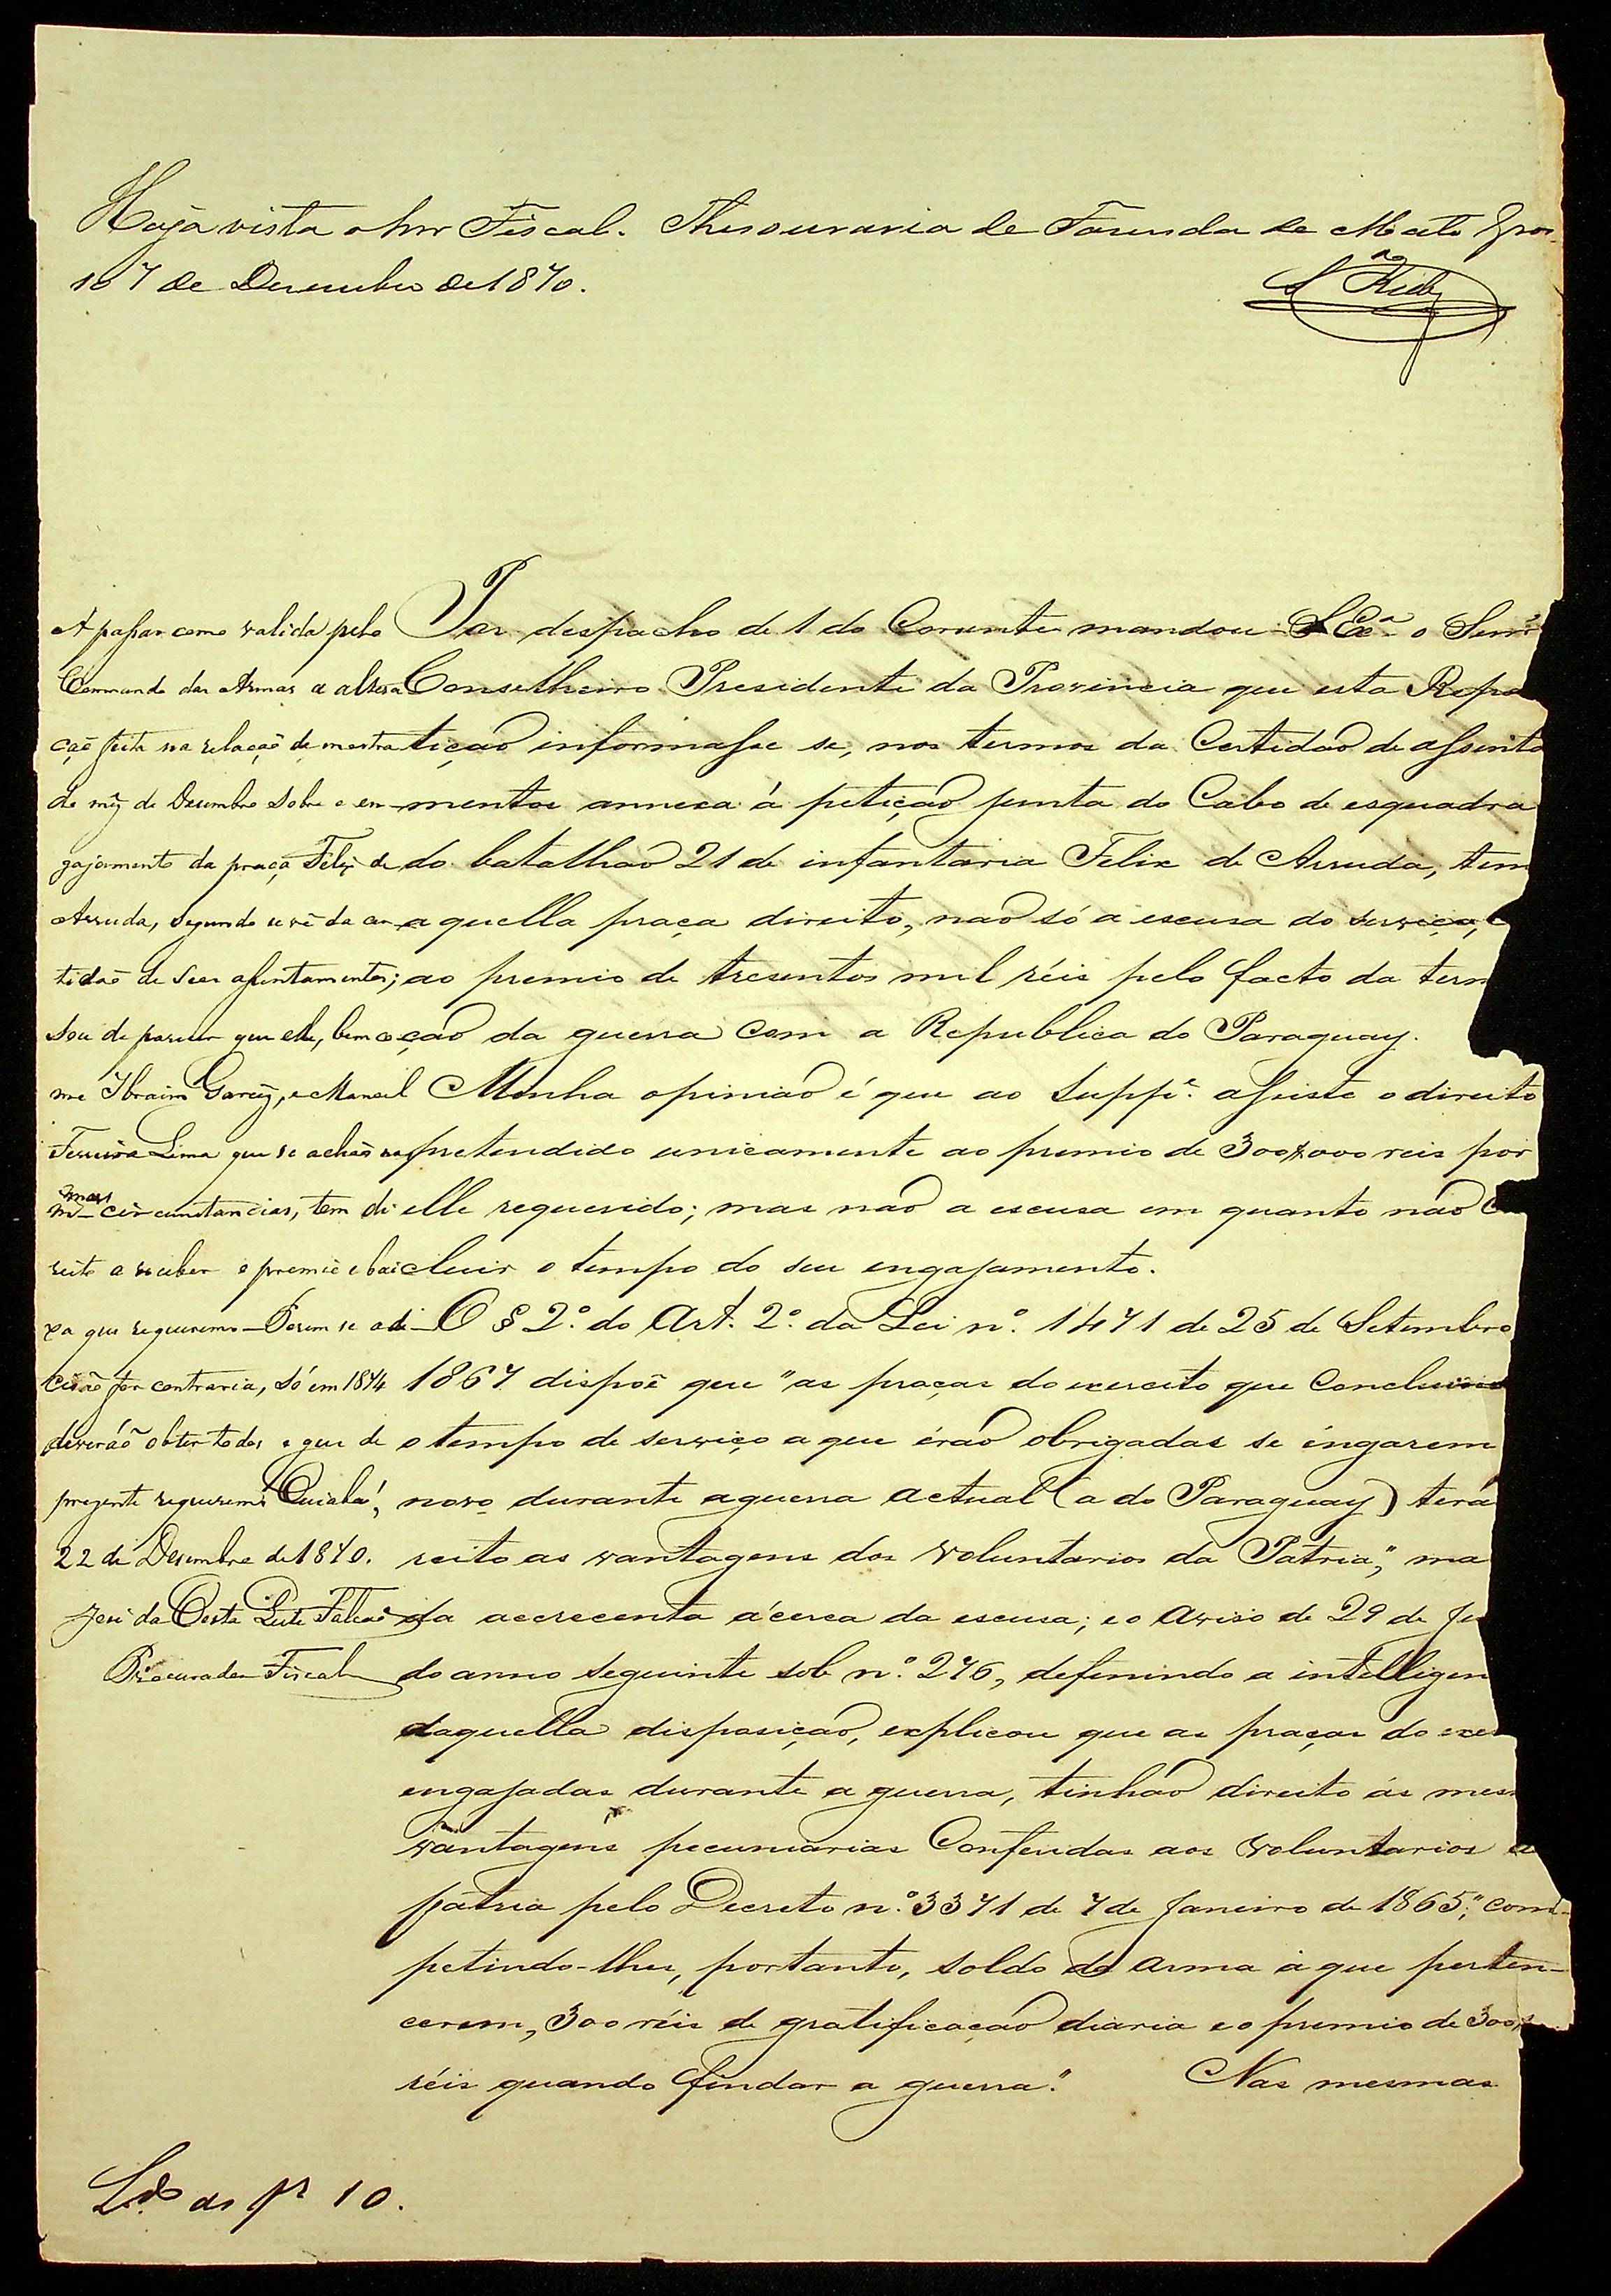 Haja vista o Snr Fiscal. Thesouraria de Fazenda de Matto Gros-
so 7 de Dezembro de 1870.
A passar como valida pelo
Commando das Armas a altera
ção feita na relação de mostra
do mez de Dezembro sobre o en-
gajamento da praça Felix de
Arruda, segundo se vê da cer-
tidão de seus assentamentos;
sou de parecer que elle, bem co-
mo Ibraim Garcez, e Manoel
Ferreira Lima que se achão nas
mas
m circunstancias, tem di
reito a receber o premio e bai
xa que requererão. Porem se a de-
cisão for contraria, só em 1874
deverão obter todos o que de
prezente requerem. Cuiabá,
22 de Dezembro de 1870.
José da Costa Leite Falcão
Procurador Fiscal
Por despacho de 1 do Corrente mandou S Exª o Senr
Conselheiro Presidente da Provincia que esta Repa
tição informasse se, nos termos da Certidão de assenta
mentos annexa á petição junta do Cabo de esquadra
do batalhão 21 de infantaria Felix de Arruda, tem
aquella praça direito, não só a escusa do serviço,
ao premio de tresentos mil réis pelo facto da term
ção da guerra com a Republica do Paraguay.
Minha opinião é que ao Suppe. assiste o direito
pretendido unicamente ao premio de 300$000 reis por
elle requerido; mas não a escusa em quanto não c
cluir o tempo do seu engajamento.
O § 2º. do Art. 2º. da Lei nº. 1471 de 25 de Setembro
1867 dispoê que "as praças do exercito que concluir
o tempo de serviço a que érão obrigadas se éngajarem
novo durante a guerra actual (a do Paraguay) terá
reito as vantagens dos Voluntarios da Patria", ma
da accrecenta ácerca da escusa; e o Aviso de 29 de Ju
do anno seguinte sob nº. 276, defenindo a intelligen
daquella disposição, explicou que as praças do exer
engajadas durante a guerra, tinhão direito ás mes
vantagens pecuniarias Conferidas aos Voluntarios d
pátria pelo Decreto nº. 3371 de 7 de Janeiro de 1865;" com-
petindo-lhes, portanto, soldo da arma á que perten-
cerem, 300 réis de gratificação diaria e o premio de 300$
réis quando findar a guerra." Nas mesmas
Ldo. as fs 10.